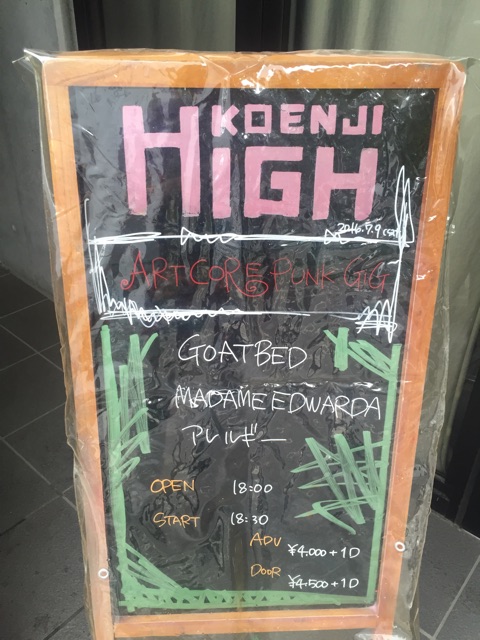 KOENJI
HIGH
2016.7.9(SAT)
ARTCORE PUNK GIG
GOATBED
MADAME EDWARDA
アレルギー
OPEN 18:00
START 18:30
ADV ¥4.000+1D
DOOR ¥4.500+1D